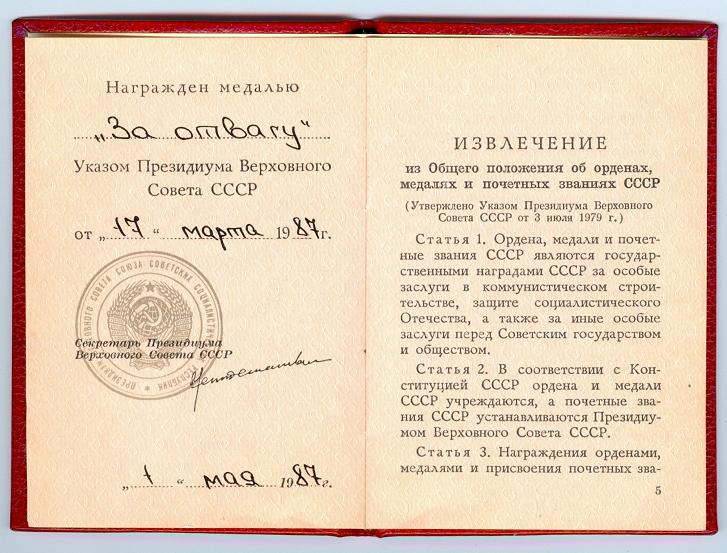 Награжден медалью
„За отвагу"
Указом Президиума Верховного
Совета СССР
от „17" марта 1987г.
ПРЕЗИДИУМ ВЕРХОВНОГО СОВЕТА СОЮЗА СОВЕТСКИХ СОЦИАЛИСТИЧЕСКИХ РЕСПУБЛИК
Секретарь Президиума
Верховного Совета СССР
„1" мая 1987г.
ИЗВЛЕЧЕНИЕ
из Общего положения об орденах,
медалях и почетных званиях СССР
(Утверждено Указом Президиума Верховного
Совета СССР от 3 июля 1979 г.)
Статья 1. Ордена, медали и почет-
ные звания СССР являются государ-
ственными наградами СССР за особые
заслуги в коммунистическом строи-
тельстве, защите социалистического
Отечества, а также за иные особые
заслуги перед Советским государством
и обществом.
Статья 2. В соответствии с Кон-
ституцией СССР ордена и медали
СССР учреждаются, а почетные зва-
ния СССР устанавливаются Президиу-
мом Верховного Совета СССР.
Статья 3. Награждения орденами,
медалями и присвоения почетных зва-
5